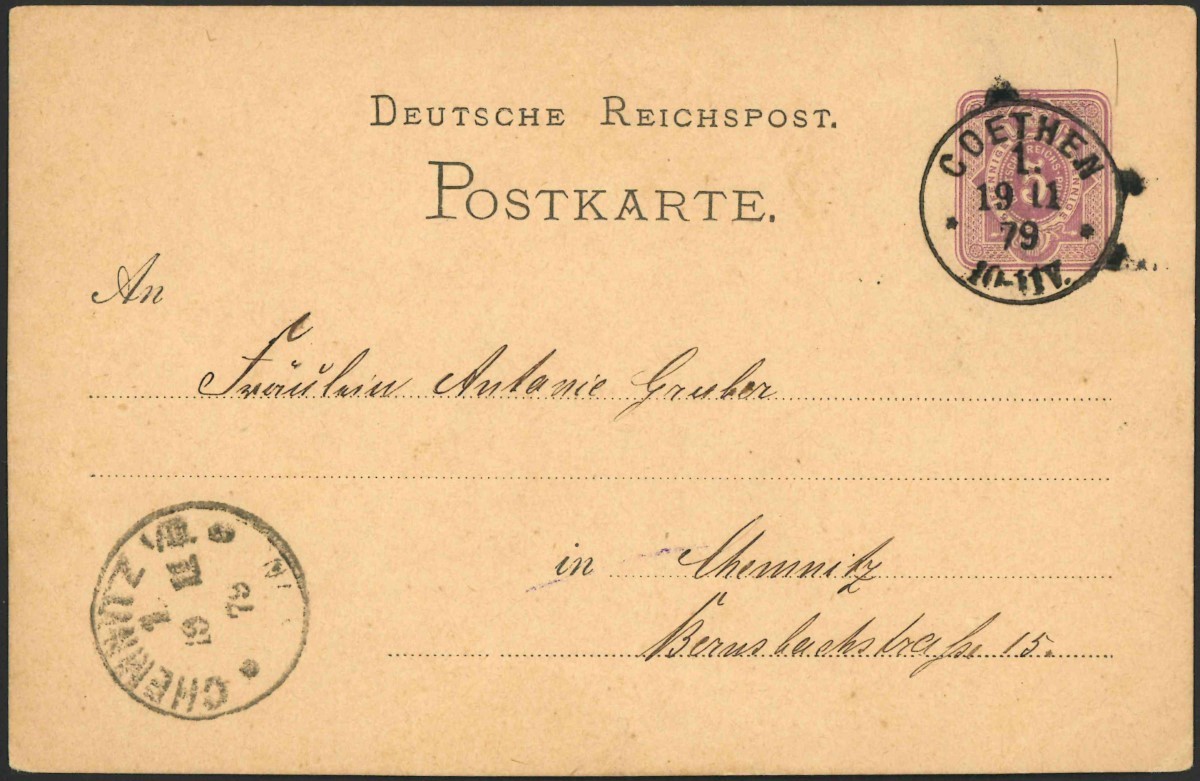 DEUTSCHE REICHSPOST.
POSTKARTE.
COETHEN
1.
19 11
79
10-11V.
5
REICHS-POST
An
Fräulein Antonie Gruber
in Chemnitz
Bernsbachstraße 15.
CHEMNITZ
1.
19 11
79